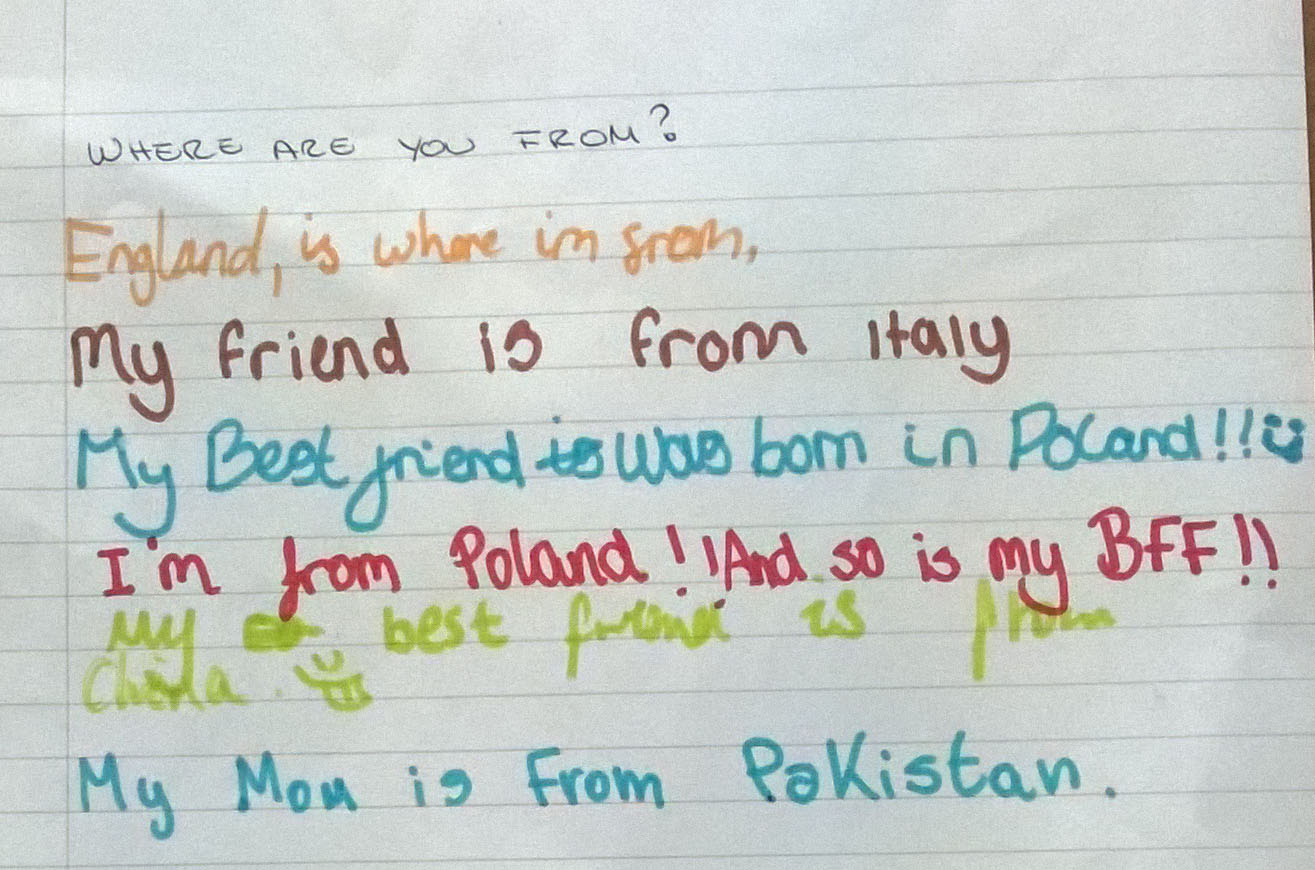 WHERE ARE YOU FROM?
England, is where im from,
My friend is from Italy
My Best friend is was born in Poland!!
I'm from Poland!! And so is my BFF!!
My best friend is from
China.
My Mom is From Pakistan.